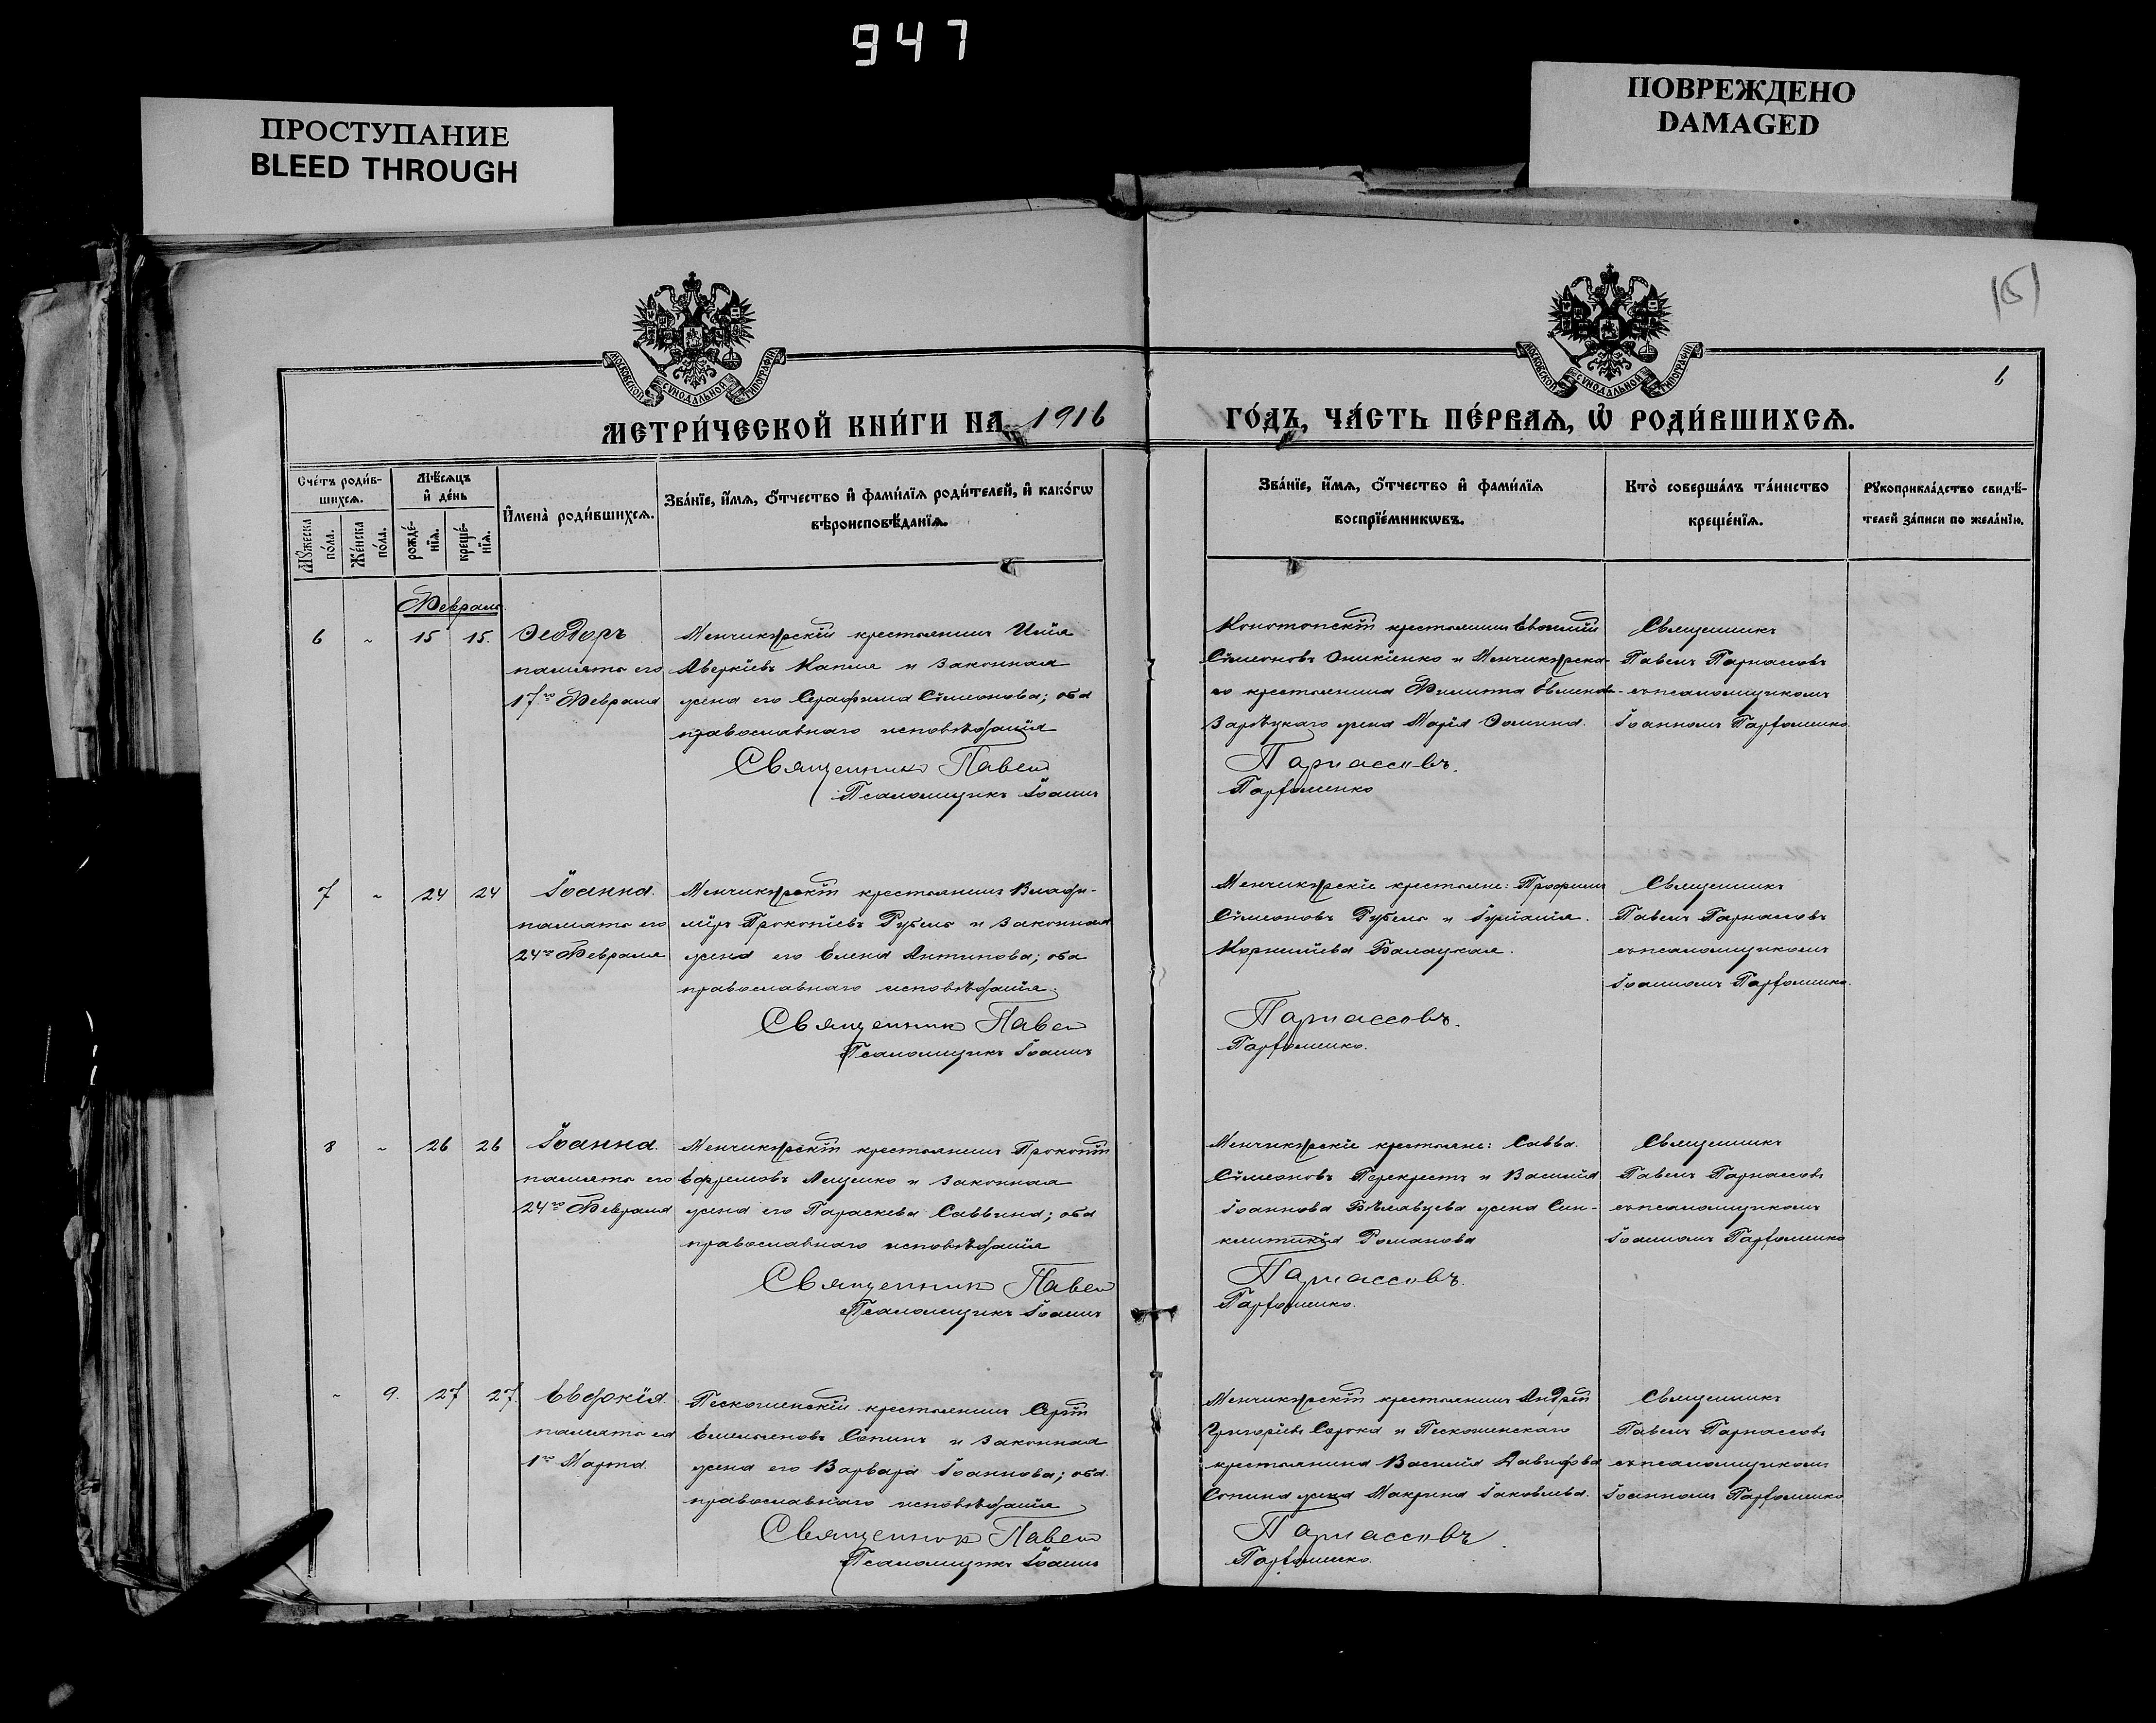 947
ПРОСТУПАНИЕ
BLEED THROUGH
ПОВРЕЖДЕНО
DAMAGED
МОСКОВСКОЙ СѴНОДАЛЬНОЙ ТИПОГРАФІИ
МОСКОВСКОЙ СѴНОДАЛЬНОЙ ТИПОГРАФІИ
6
МЕТРИ́ЧЕСКОЙ КНИ́ГИ НА 1916
ГО́ДЪ, ЧА́СТЬ ПЕ́РВАѦ, Ѡ҆ РОДИ́ВШИХСѦ.
Сче́тъ роди́в-
шихсѧ.
Мѣ́сѧцъ
и҆ де́нь
И҆мена̀ роди́вшихсѧ.
Зва́нїе, и҆́мѧ, ѻ҆́тчество и҆ фами́лїѧ роди́телей, и҆ како́гѡ
вѣроисповѣ́данїѧ.
Мꙋ́жеска
по́ла.
Же́нска
по́ла.
рожде́-
нїѧ.
креще́-
нїѧ.
Зва́нїе, и҆́мѧ, ѻ҆́тчество и҆ фами́лїѧ
воспрїе́мникѡвъ.
Кто̀ соверша́лъ та́инство
креще́нїѧ.
Рꙋкоприкла́дство свидѣ́-
телей за́писи по жела́нїю.
Февраль
6 " 15 15. Ѳеодоръ
память его
17го Февраля
Менчикурскій крестьянинъ Илія
Аверкіевъ Капля и законная
жена его Серафима Сѵмеонова; оба
православнаго исповѣданія
Священникъ Павелъ
Псаломщикъ Іоаннъ
Конотопскій крестьянинъ Евѳимій
Сѵмеоновъ Оникіенко и Менчикурска-
го крестьянина Филиппа
Зарѣцкаго жена Марія Ѳомина.
Парнассовъ.
Парѳоменко
Священникъ
Павелъ Парнассовъ
съ псаломщикомъ
Іоанномъ Парѳоменко.
7 " 24 24 Іоанна.
память его
24го Февраля
Менчикурскій крестьянинъ Влади-
міръ Прокопіевъ Рубель и законная
жена его Елена Антипова; оба
православнаго исповѣданія.
Священникъ Павелъ
Псаломщикъ Іоаннъ
Менчикурскіе крестьяне: Трофимъ
Сѵмеоновъ Рубель и Іуліанія
Корниліева Балацкая.
Парнассовъ.
Парѳоменко.
Священникъ
Павелъ Парнассовъ
съ псаломщикомъ
Іоанномъ Парѳоменко.
8 " 26 26 Іоанна.
память его
24го Февраля
Менчикурскій крестьянинъ Прокопій
Ефремовъ Лещенко и законная
жена его Параскева Саввина; оба
православнаго исповѣданія
Священникъ Павелъ
Псаломщикъ Іоаннъ
Менчикурскіе крестьяне: Савва
Сѵмеоновъ Перекрестъ и Василія
Іоаннова Бѣлявцева жена Син-
клитикія Романова
Парнассовъ.
Парѳоменко.
Священникъ
Павелъ Парнассовъ
съ псаломщикомъ
Іоанномъ Парѳоменко
" 9. 27 27. Евдокія.
память ея
1го Марта.
Пескошенскій крестьянинъ Сергій
Емельяновъ Сопинъ и законная
жена его Варвара Іоаннова; оба
православнаго исповѣданія
Священникъ Павелъ
Псаломщикъ Іоаннъ
Менчикурскій крестьянинъ Андрей
Григоріевъ Сорока и Пескошенскаго
крестьянина Василія Давидова
Сопина жена Макрина Іаковлева.
Парнассовъ
Парѳоменко.
Священникъ
Павелъ Парнассовъ
съ псаломщикомъ
Іоанномъ Парѳоменко